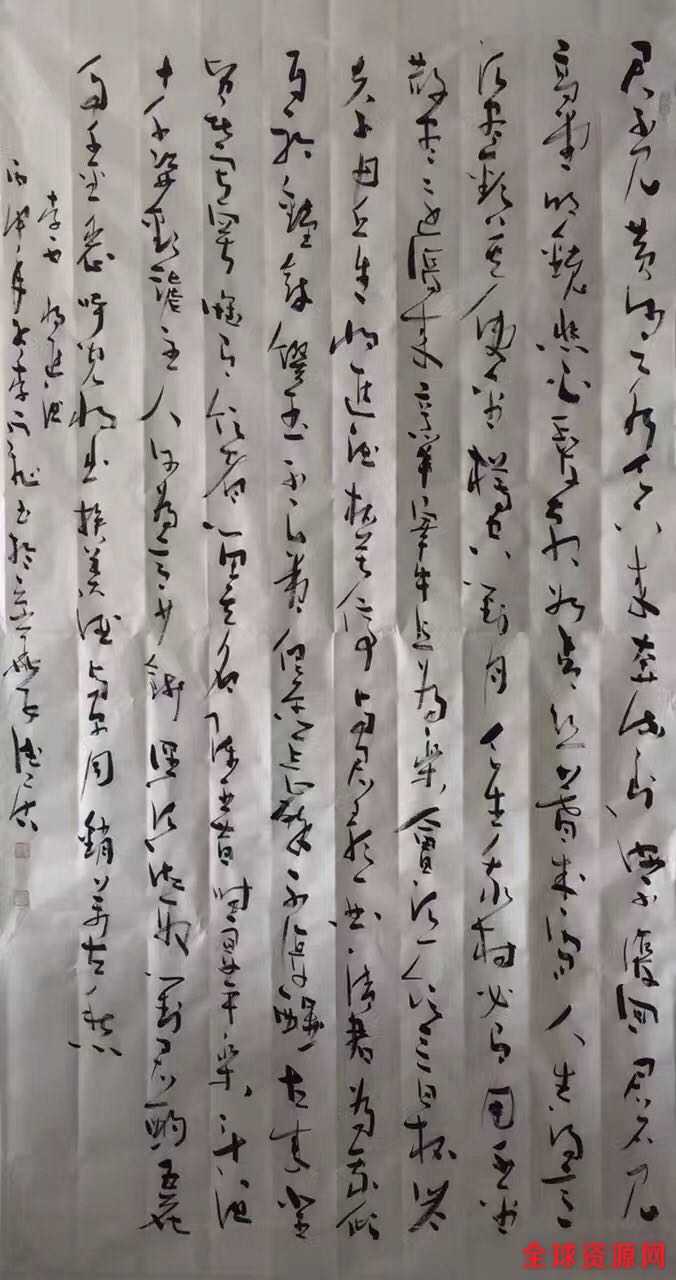 君不见黄河之水天上来奔流到海不复回君不见
高堂明镜悲白发朝如青丝暮成雪人生得意
须尽欢莫使金樽空对月天生我材必有用千金
散尽还复来烹羊宰牛且为乐会须一饮三百杯岑
夫子丹丘生将进酒杯莫停与君歌一曲请君为我倾
耳听钟鼓馔玉不足贵但愿长醉不复醒古来圣
贤皆寂寞惟有饮者留其名陈王昔时宴平乐斗酒
十千恣欢谑主人何为言少钱径须沽取对君酌五花
马千金裘呼儿将出换美酒与尔同销万古愁
李白 将进酒
全球资源网